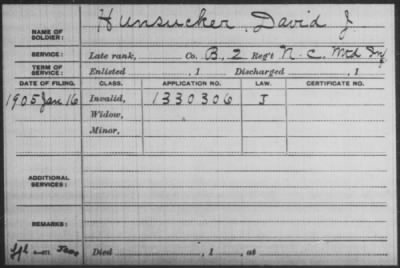 NAME OF SOLDIER: Hunsucker, David J.
SERVICE: Late rank, Co. B, 2 Reg't N. C. Mtd Inf
TERM OF SERVICE: Enlisted , 1 Discharged , 1
DATE OF FILING. CLASS. APPLICATION NO. LAW. CERTIFICATE NO.
1905 Jan 16 Invalid, 1330306 J
Widow,
Minor,
ADDITIONAL SERVICES:
REMARKS:
Died , 1 , at